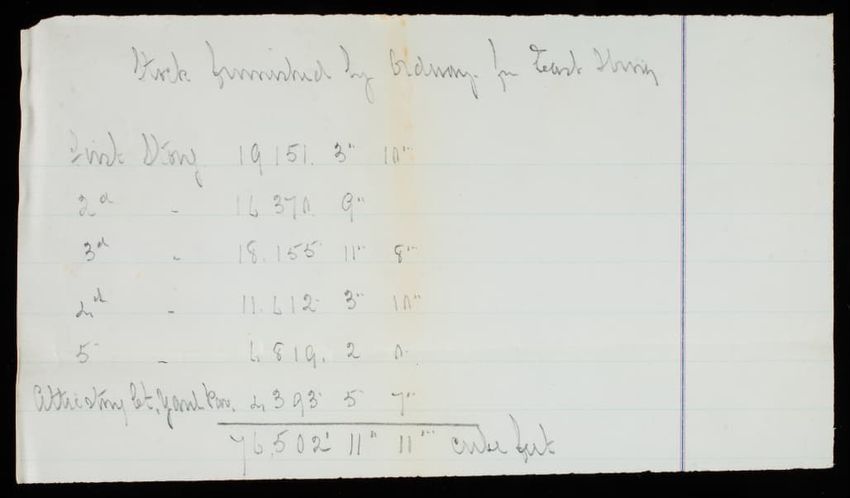 Stock furnished by Ordway for East Wing
First Story 19151. 3" 10'''
2d " 16 370. 9"
3d " 18.155 11" 8'''
4th " 11.612 3" 10'''
5 " 6 819. 2 0
Attic Story 4 393 5 7"
76,502' 11" 11''' cube feet